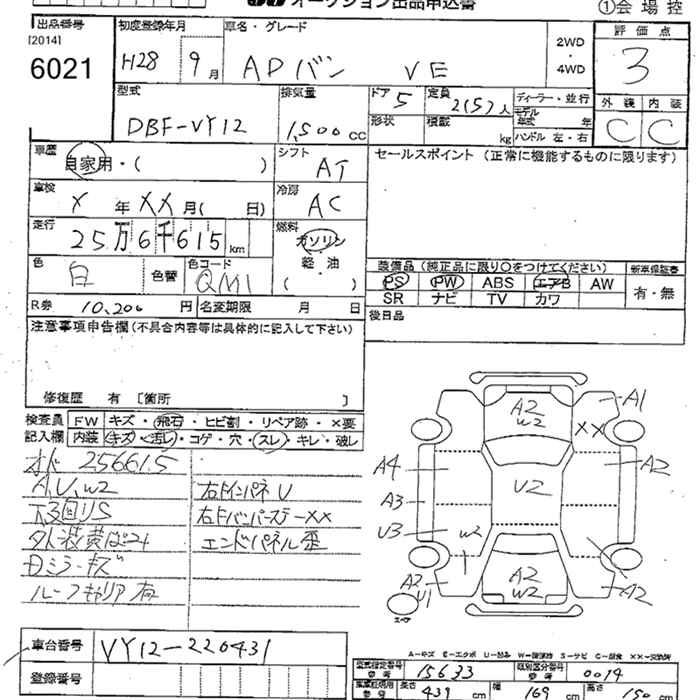 オークション出品申込書
①会場控
出品番号 [2014] 6021
初度登録年月 H28 年 9 月
車名・グレード ADバン VE
2WD・4WD
評価点 3
外装 C 内装 C
型式 DBF-VY12
排気量 1,500 CC
ドア 5
定員 2(5)人
形状
積載 kg
ディーラー・並行
モデル年式 年
ハンドル 左・右
車歴 自家用・( )
シフト AT
セールスポイント(正常に機能するものに限ります)
車検 X 年 XX 月( 日)
冷房 AC
走行 25万6千615 km
燃料 ガソリン・軽・油 ( )
色 白 色替
色コード QM1
装備品(純正品に限り○をつけてください)
新車保証書 有・無
PS PW ABS エアB AW
SR ナビ TV カワ
R券 10,200 円
名変期限 月 日
後日品
注意事項申告欄(不具合内容等は具体的に記入して下さい)
修復歴 有 [箇所 ]
検査員記入欄
FW キズ・飛石・ヒビ割・リペア跡・×要
内装 キズ・汚レ・コゲ・穴・スレ・キレ・破レ
オド 256615
A,U,W2
下回りS
ミラーキズ
ルーフキャリア有
右インパネU
エンドパネル歪
A2
W2
A1
XX
A4
A2
A3
U2
U3
W2
A2
U1
A2
W2
A2
スペア
車台番号 VY12-220431
登録番号
A=キズ E=エクボ U=凹み W=補修跡 S=サビ C=腐食 XX=交換済
型式指定番号 参考 15633
類別区分番号 参考 0014
参考 長さ 439 cm
幅 169 cm
高さ 150 cm